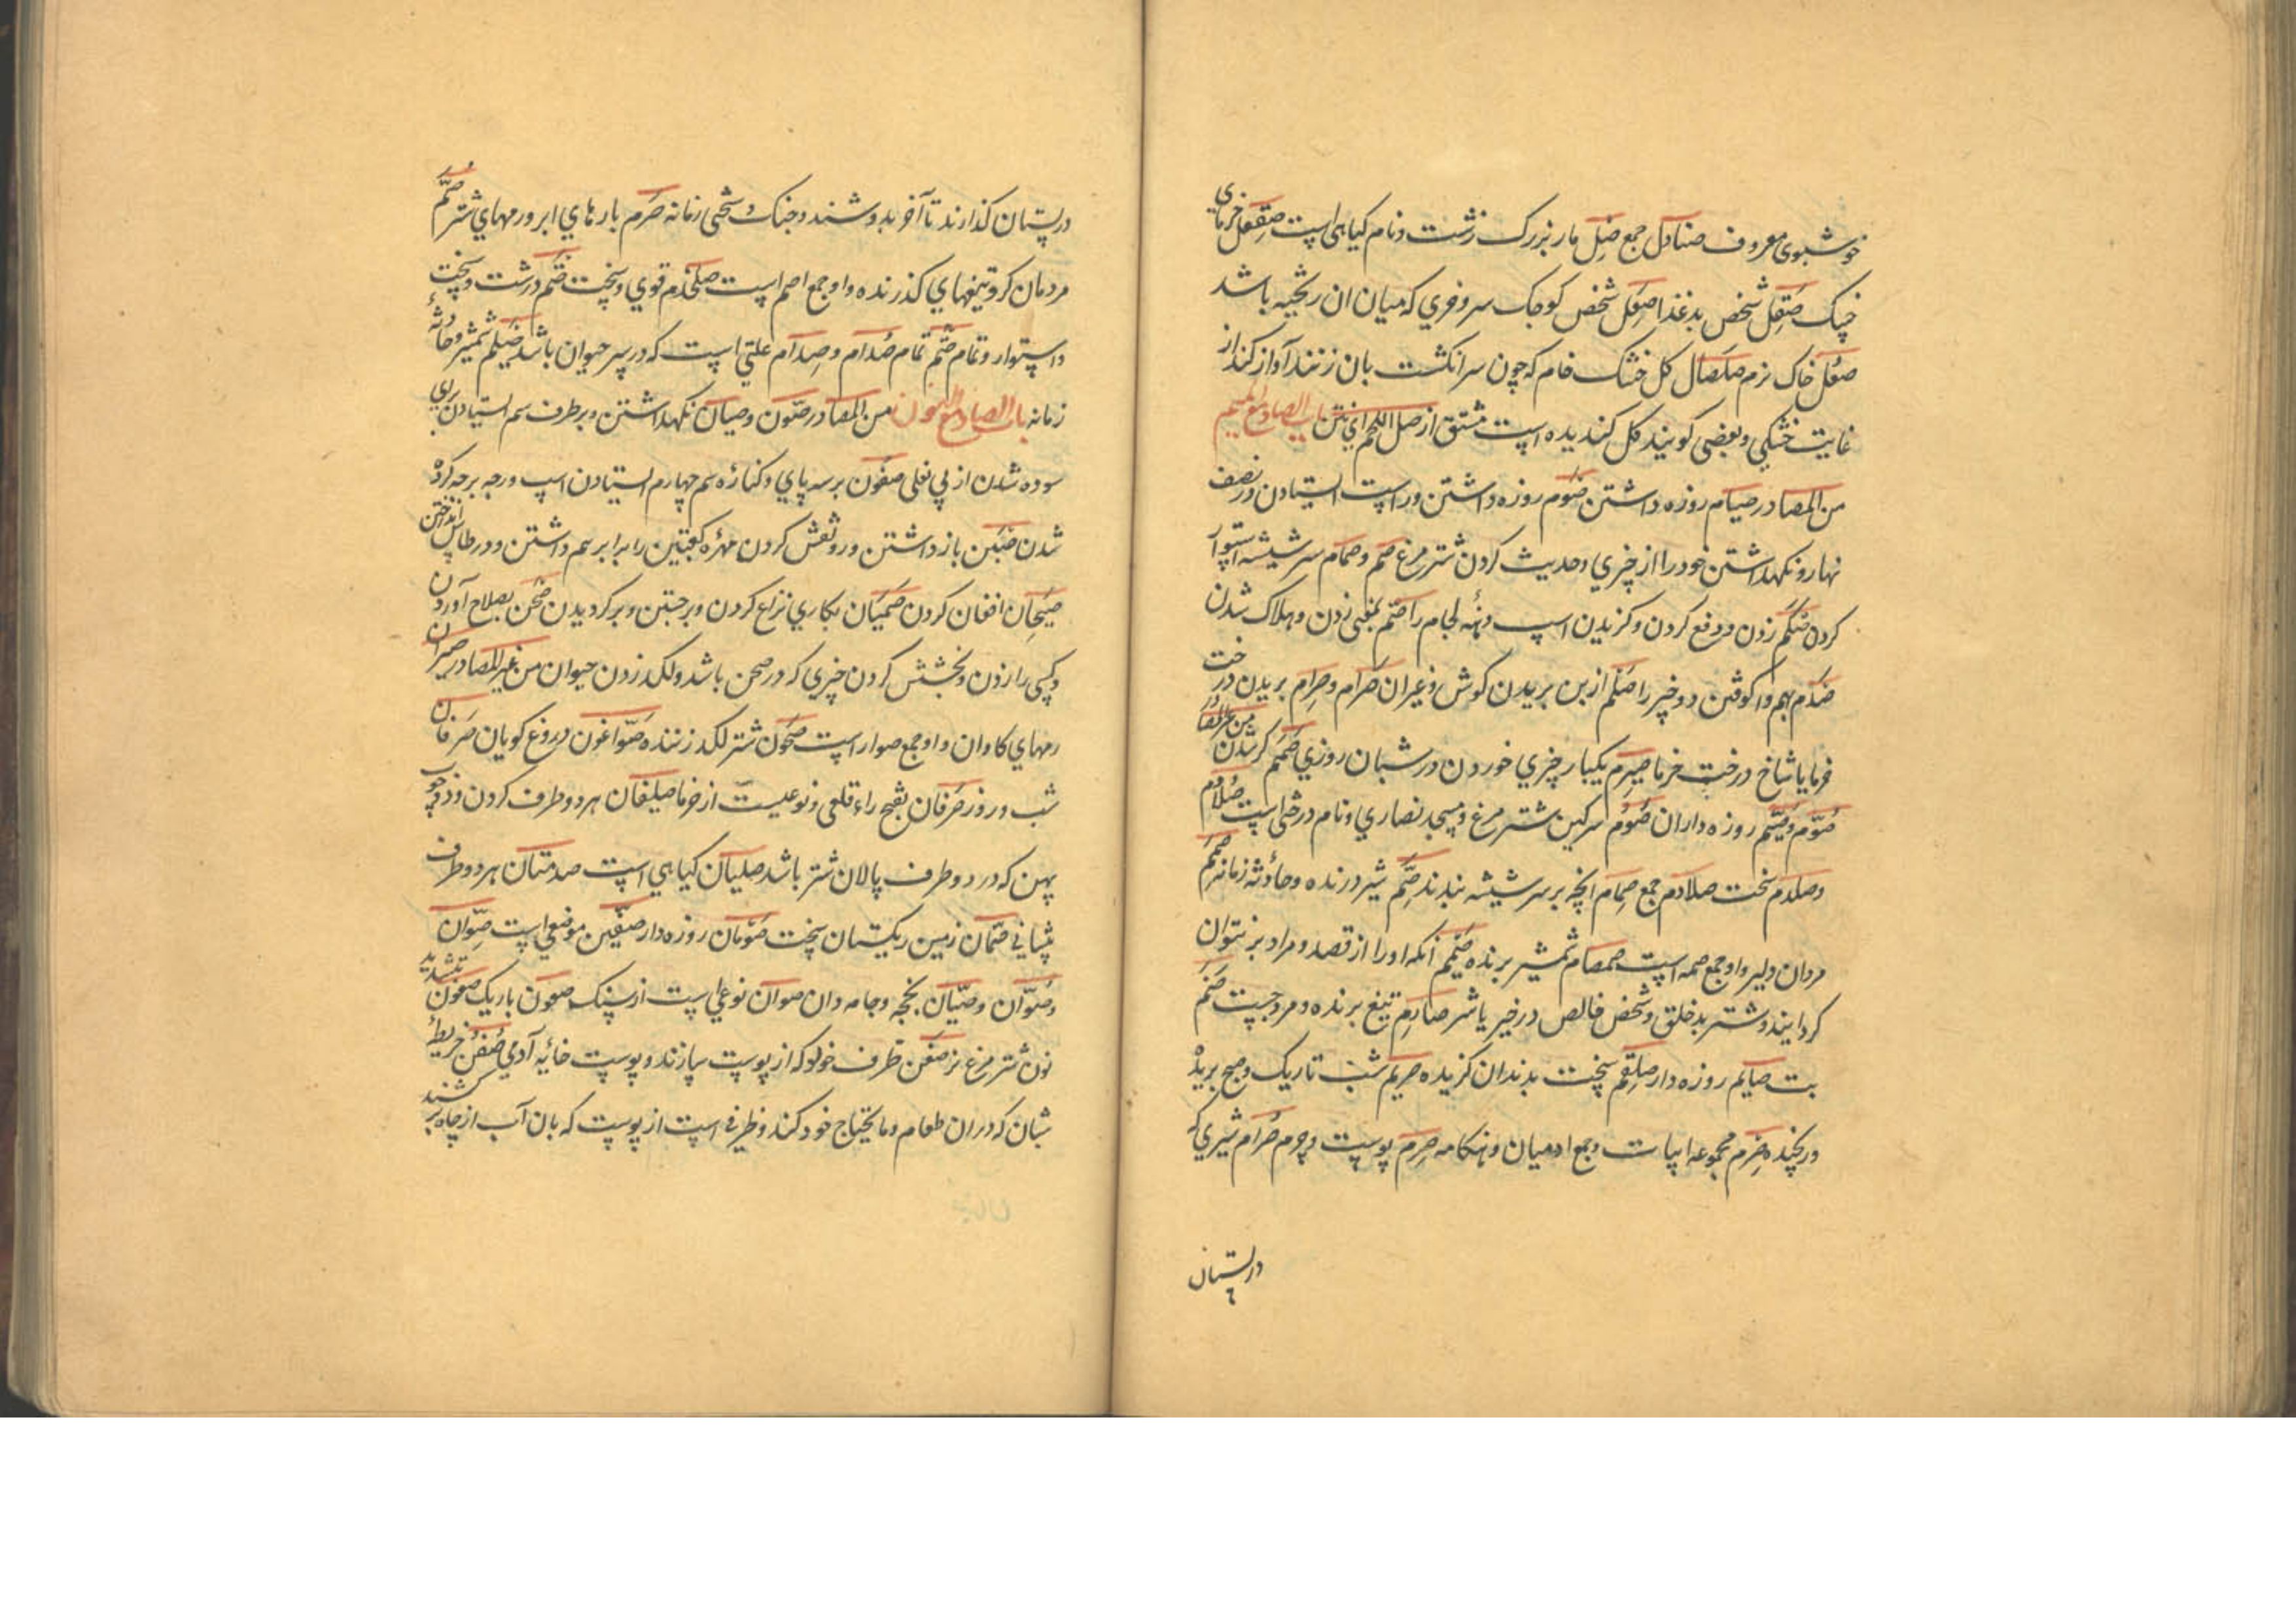 خوشبوی معروف صنادل جمع صِل مار بزرک زشت ونام کیاهی است صقعل خرمای
خشک صَقِل شخص بدغذا صَعِل شخص کوجک سر وخری که میان ان ریخته باشد
صلّ خاک نرم صلصال کل خشک خام که چون سرانکشت بان زنند آواز کند از
غایت خشکی وبعضی کویند کل کندیده است مشتق از صل اللحم ای نتن باب الصاد مع المیم
من المصادر صیام روزه داشتن صَوم روزه داشتن وراست ایستادن ودر نصف
نهار ونکهداشتن خود را از چیزی وحدیث کردن شتر مرغ صم وصمام سر شیشه استوار
کردن صَکم زدن ودفع کردن وکزیدن اسب دهنهٔ لجام را صتم بمغنی زدن وهلاک شدن
صَدم بهم واکوفتن دو چیز را صَلم از بن بریدن کوش وغیر ان صَرام وصِرام بریدن درخت
خرما یا شاخ درخت خرما صَیرم یکبار چیزی خوردن در شبان روزی صَمَم کر شدن من غیر المصادر
صُوّم وصُیّم روزه داران صَوم سرکین شتر مرغ ومسجد نصاری ونام درختی است صُلادم
وصلدم سخت صلادم جمع صِمام آنچه بر سر شیشه بندند صِمّ شیر درنده وحادثه زمانه صِمَم
مردان دلیر واو جمع صمه است صمصام شمشیر برنده صَمیم آنکه او را از قصد ومراد بر نتوان
کردانیدن وشتر بدخلق وشخص خالص در خیر یا شر صارم تیغ برنده ومرد چست صَنَم
بت صایم روزه دار صِلقِم سخت بدندان کزیده صریم شب تاریک وصبح بریده
وریخته صِرم مجموعه ابیات وجمع ادمیان وهنکامه صِرم پوست وچرم صُرام شیری که
در پستان
در پستان کذارند تا آخر بدوشند وجنک وسختی زمانه صَرم بارهای ابر ورمهای شتر صُمّ
مردمان کر وتیغهای کذرنده واو جمع اصم است صلخدم قوی وسخت صَتم درشت وسخت
واستوار وتمام صَتم تمام صُدام وصِدام علتی است که در سر حیوان باشد صَیلم شمشیر وحادثهٔ
زمانه باب الصاد مع النون من المصادر صَون وصیان نکهداشتن وبر طرف سم ایستادن بر پی
سوده شدن از بی نعلی صفون بر سه پای وکناره سم چهارم ایستادن اسب ورجه برجه کرده
شدن صَبن باز داشتن وروثغش کردن مهره کعبتین را برابر سم داشتن ودر طاس انداختن
صَیحان افغان کردن صَمَیان بکاری نزاع کردن وبرجستن وبر کردیدن صَحن بصلاح آوردن
وکسی را زدن وبخشش کردن چیزی که در صحن باشد ولکد زدن حیوان من غیر المصادر صیران
رمهای کاوان واو جمع صوار است صَحون شتر لکد زننده صَوّاغون دروغ کویان صَرفان
شب وروز صَرَفان بفتح راء قلعی ونوعیست از خرما صلیفان هر دو طرف کردن ودو چوب
پهن که در دو طرف پالان شتر باشد صلیان کیاهی است صدمتان هر دو طرف
پیشانی صَمّان زمین ریکستان سخت صَومان روزه دار صِفّین موضعی است صِوان
وصُوان وصِیان بخچه وجامه دان صوان نوعی است از سنک صعون باریک صعون بتشدید
نون شتر مرغ نر صَفن ظرف خولو که از پوست سازند وپوست خائه آدمی صُفن خریطهٔ
شبان که در ان طعام وما یحتاج خود کند وظرفی است از پوست که بان آب از چاه بر کشند